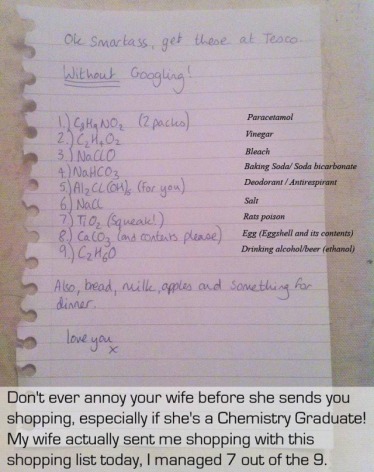 Ok Smartass, get these at Tesco.
Without Googling!
1.) C8H9NO2 (2 packs) Paracetamol
2.) C2H4O2 Vinegar
3.) NaClO Bleach
4.) NaHCO3 Baking Soda/ Soda bicarbonate
5.) Al2Cl(OH)5 (for you) Deodorant / Antirespirant
6.) NaCl Salt
7.) TiO2 (Squeak!) Rats poison
8.) CaCO3 (and contents please) Egg (Eggshell and its contents)
9.) C2H6O Drinking alcohol/beer (ethanol)
Also, bread, milk, apples and something for
dinner.
love you
x
Don't ever annoy your wife before she sends you
shopping, especially if she's a Chemistry Graduate!
My wife actually sent me shopping with this
shopping list today, I managed 7 out of the 9.